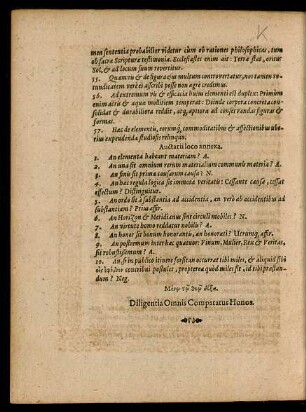 men sententia probabilior videtur cùm ob rationes philosophicas, tum
ob sacra Scriptura testimonia. Ecclesiastes enim ait: Terra stat, oritur
Sol, & ad locum suum revertitur.
55. Quamvis & de figura ejus multum controvertatur, nos tamen
rotunditatem veri ei ascribi posse non agrè credimus.
56. Ad extremum vis & efficacia hujus elementi est duplex: Primùm
enim aëris & aqua mollitiem temperat: Deinde corpora concreta conso-
lidat & durabiliora reddit: atq, aptiora ad corpus eandas figuras &
formas.
57. Hac de elementis, eorumq, commoditatibus & affectionibus ube-
rius expendenda studiosis relinquo.
Auctarii loco annexa.
1. An elementa habeant materiam? A.
2. An una sit omnium rerum materialium communis materia? A.
3. An finis sit prima causarum causa? N.
4. An hac regula logica sit immota veritatis: Cessante causâ, cessat
effectum? Distinguitur.
5. An ordo sit à substantia ad accidentia, an verò ab accidentibus ad
substantiam? Prius affir.
6. An Horizon & Meridianus sint circuli mobiles? N.
7. An virtute homo reddatur nobilis? A.
8. An honor sit in honorante, an honorato? Utrumq, affir.
9. An postremum inter hac quatuor: Vinum, Mulier, Rex & Veritas,
sit robustissimum? A.
10. An si in publico itinere forsitan occurrat tibi miles, & aliquid sibi
conceribus poculis, propterea quod miles sit, id tibi prastan-
dum? Neg.
Μόνῳ τῷ Θεῷ δόξα.
Diligentia Omnis Comparatus Honos.